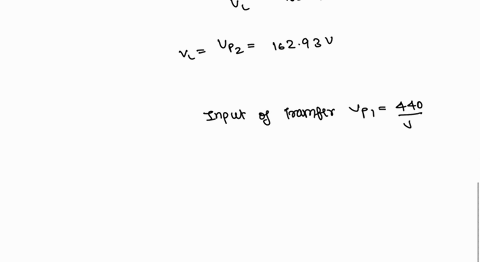 V_L
V_L = V_P2 = 162.93 V
Input of Tranfer V_P1 = 440/V